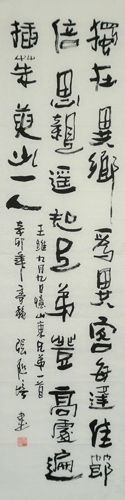 獨在異鄉爲異客每逢佳節
倍思親遥知兄弟登高處遍
插茱萸少一人
王維九月九日憶山東兄弟一首
辛卯年 張 書